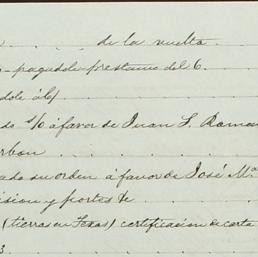 de la vuelta
pagadole prestamo del 6.
dole á la
do s/o á favor de Juan S. Roman
rbon
ado su orden á favor de José Mª
ision y portes de
(tierras en Texas) certificacion de carta
3